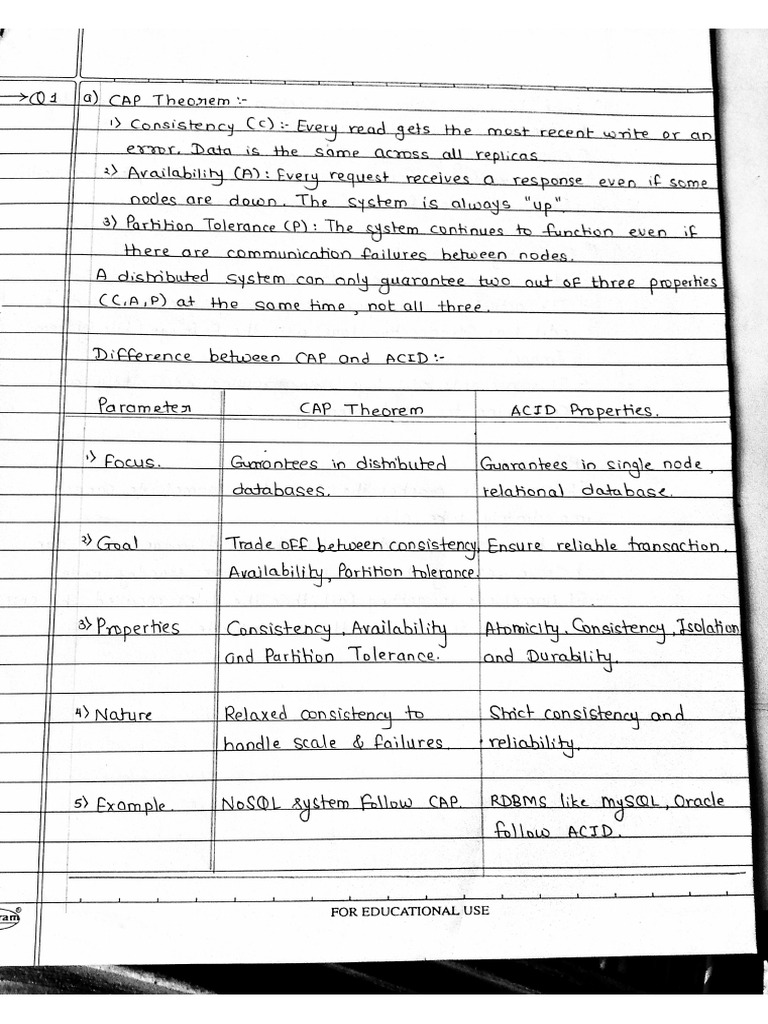 →Q1 a) CAP Theorem :-
1) Consistency (C) :- Every read gets the most recent write or an
error. Data is the same across all replicas.
2) Availability (A) : Every request receives a response even if some
nodes are down. The system is always "up".
3) Partition Tolerance (P) : The system continues to function even if
there are communication failures between nodes.
A distributed system can only guarantee two out of three properties
(C,A,P) at the same time, not all three.
Difference between CAP and ACID :-
Parameter CAP Theorem ACID Properties.
1) Focus. Guarantees in distributed Guarantees in single node,
databases. relational database.
2) Goal Trade off between consistency, Ensure reliable transaction.
Availability, Partition tolerance.
3) Properties Consistency, Availability Atomicity, Consistency, Isolation
and Partition Tolerance. and Durability.
4) Nature Relaxed consistency to Strict consistency and
handle scale & failures. reliability.
5) Example. NoSQL system follow CAP. RDBMS like MySQL, Oracle
follow ACID.
ram®
FOR EDUCATIONAL USE